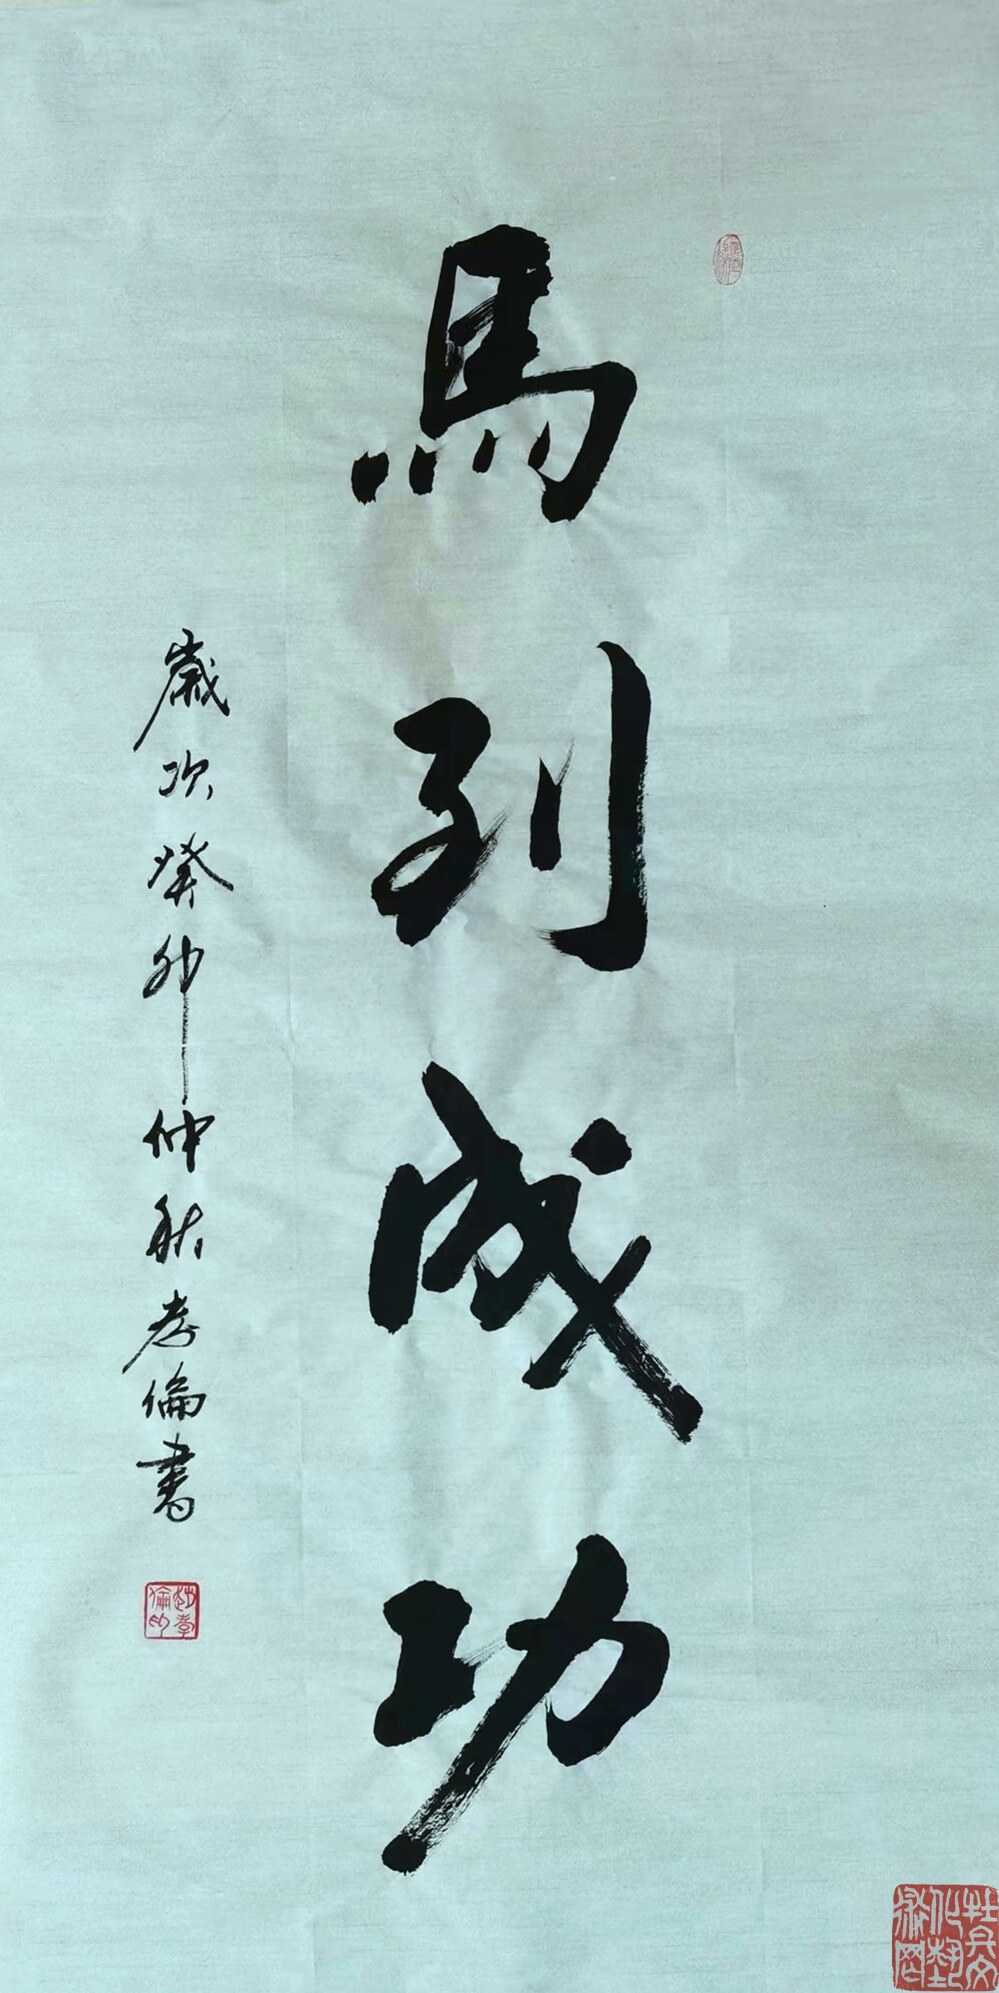 馬列成功
歲次癸卯仲秋孝倫書